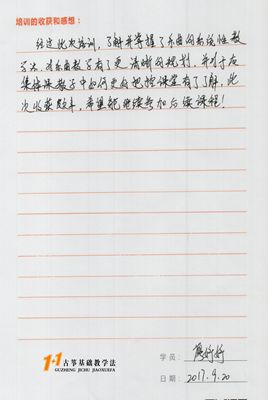 培训的收获和感想：
经过此次培训，了解并掌握了乐曲的系统性教
学法，对乐曲教学有了更清晰的规划，并对于应
集体课教学中如何更好把控课堂有了了解，此
次收获颇丰，希望能继续参加后续课程！
1+1 古筝基础教学法
GUZHENG JICHU JIAOXUEFA
学员：
日期：2017.9.20